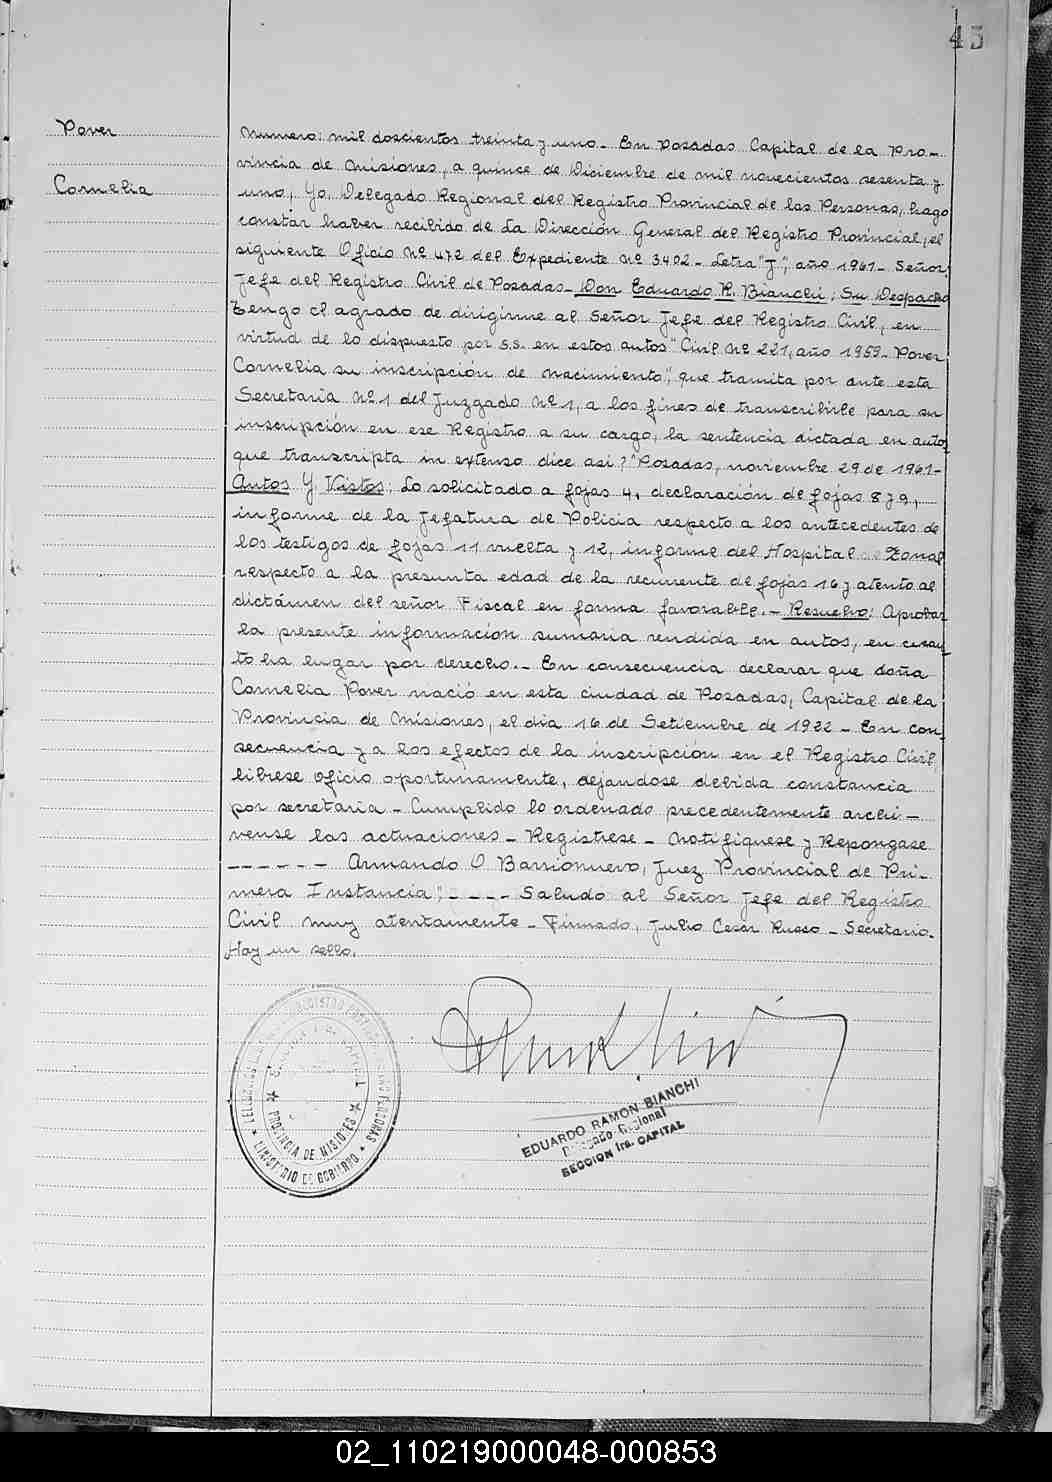 45
Pover
Cornelia
Numero: mil doscientos treinta y uno. En Posadas Capital de la Pro-
vincia de Misiones, a quince de Diciembre de mil novecientos sesenta y
uno, Yo, Delegado Regional del Registro Provincial de las Personas, hago
constar haber recibido de La Dirección General del Registro Provincial, el
siguiente Oficio Nº 472 del Expediente Nº 3402 - Letra "J", año 1961 - Señor
Jefe del Registro Civil de Posadas - Don Eduardo R. Bianchi; Su Despacho
Tengo el agrado de dirigirme al Señor Jefe del Registro Civil, en
virtud de lo dispuesto por S.S. en estos autos "Civil Nº 221, año 1959 - Pover
Cornelia su inscripción de nacimiento", que tramita por ante esta
Secretaria Nº 1 del Juzgado Nº 1, a los fines de transcribirle para su
inscripción en ese Registro a su cargo, la sentencia dictada en auto,
que transcripta in extenso dice asi: "Posadas, noviembre 29 de 1961-
Autos Y Vistos: Lo solicitado a fojas 4, declaración de fojas 8 y 9,
informe de la Jefatura de Policia respecto a los antecedentes de
los testigos de fojas 11 vuelta y 12, informe del Hospital de Zonal
respecto a la presunta edad de la recurrente de fojas 16 y atento al
dictámen del señor Fiscal en forma favorable. - Resuelvo: Aprobar
la presente información sumaria rendida en autos, en cuan-
to ha lugar por derecho. - En consecuencia declarar que doña
Cornelia Pover nació en esta ciudad de Posadas, Capital de la
Provincia de Misiones, el dia 16 de Setiembre de 1922 - En con-
secuencia y a los efectos de la inscripción en el Registro Civil,
librese oficio oportunamente, dejandose debida constancia
por secretaria - Cumplido lo ordenado precedentemente archi-
vense las actuaciones - Registrese - Notifiquese y Repongase
- - - - - - Armando O Barrionuevo, Juez Provincial de Pri-
mera Instancia"; - - - - Saludo al Señor Jefe del Registro
Civil muy atentamente - Firmado, Julio Cesar Russo - Secretario.
Hay un sello.
PROVINCIA DE MISIONES
MINISTERIO DE GOBIERNO
EDUARDO RAMON BIANCHI
Delegado Regional
SECCION 1ra. CAPITAL
02_110219000048-000853